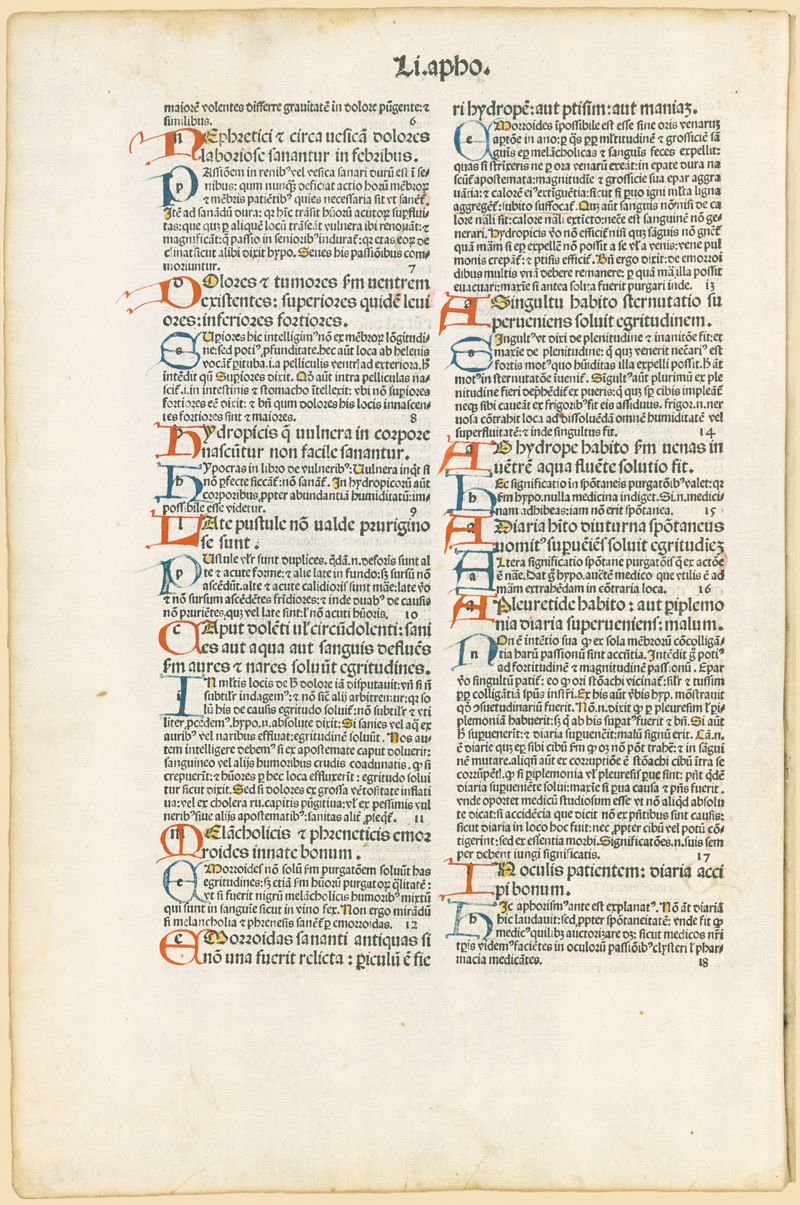 Li.apho.
maiorē volentes differre grauitatē in dolore pūgente: ⁊
similibus. 6
NEphretici ⁊ circa uesicā dolores
laboriose sanantur in febribus.
PAssiōem in renib⁹ vel vesica sanari durū est ī se⸗
nibus: qum nunqȝ deficiat actio horū mēbroꝝ
⁊ mēbris patiētib⁹ quies necessaria sit vt sanēt̄.
Itē ad sanādū dura: qr hic trāsit hūorū acutoꝝ suꝑflui⸗
tas: que quꝫ ꝑ aliquē locū trāseāt vulnera ibi renouāt: ⁊
magnificāt: q̄ passio in seniorib⁹ indurat̄: qr etas eoꝝ de
clinat sicut alibi dixit hypo. Senes his passiōibus com⸗
moriuntur. 7
DOlores ⁊ tumores ẜm uentrem
existentes: superiores quidē leui
ores: inferiores fortiores.
SUpiores hic intelligim⁹ nō ex mēbroꝝ lōgitudi⸗
ne: sed poti⁹ ꝓfunditate. hec aūt loca ab helenis
vocāt̄ ꝑituba. i. a pelliculis ventri ad exteriora. h̄
intēdit qū Supiores dixit. Qd̄ aūt intra pelliculas na⸗
scit̄. i. in intestinis ⁊ stomacho ītellexit: vbi nō supiores
fortiores eē dicit: ⁊ bn̄ qum dolores his locis innascen⸗
tes fortiores sint ⁊ maiores. 8
HYdropicis q̄ uulnera in corpore
nascūtur non facile sanantur.
HYpocras in libro de vulnerib⁹: Uulnera inqt si
nō ꝑfecte siccāt̄: nō sanāt̄. In hydropicorū aūt
corporibus, ꝓpter abundantiā humiditatū: im⸗
possibile esse videtur. 9
LAte pustule nō ualde prurigino
se sunt.
PUstule vl̄r sunt duplices. qdā. n. deforis sunt al
te ⁊ acute forme: ⁊ alie late in fundo: sȝ sursū nō
ascēdūt. alte ⁊ acute calidioris sunt māe: late v̄o
⁊ nō sursum ascēdētes frīdiores: ⁊ inde duab⁹ de causis
nō pruriētes. quꝫ vel late sunt: l̄ nō acuti hūoris. 10
CAput dolēti ul̄ circūdolenti: sani
es aut aqua aut sanguis defluēs
ẜm aures ⁊ nares soluūt egritudines.
IN ml̄tis locis de h̄ dolore iā disputauit: vn̄ si n̄
subtil̄r indagem⁹: ⁊ nō sic alij arbitrentur: qr so
lū his de causis egritudo soluit̄: nō subtil̄r ⁊ vti
liter ꝓcedem⁹. hypo. n. absolute dixit: Si sanies vel aq̄ ex
aurib⁹ vel naribus effluat: egritudinē soluūt. Nos au⸗
tem intelligere debem⁹ si ex apostemate caput doluerit:
sanguineo vel alijs humoribus crudis coadunatis. ꝙ si
crepuerīt: ⁊ hūores ꝑ hec loca effluxerīt: egritudo solui
tur sicut dixit. Sed si dolores ex grossa vētositate inflati
ua: vel ex cholera ru. capitis pūgitiua: vl̄ ex pessimis vul
nerib⁹ siue alijs apostematib⁹: sanitas aliē ꝓleq̄t̄. 11
MElācholicis ⁊ phreneticis emor
roides innate bonum.
EMorroides nō solū ẜm purgatōem soluūt has
egritudines: sȝ etiā ẜm hūorū purgatoꝝ q̄litatē:
vt si fuerit nigrū melācholicis humorib⁹ mixtū
qui sunt in sanguīe sicut in vino fex. Non ergo mirādū
si melancholia ⁊ phrenesis sanēt̄ ꝑ emorroidas. 12
EMorroidas sananti antiquas si
nō una fuerit relicta: ꝑiculū ē fie
ri hydropē: aut ptisim: aut maniaꝫ.
EMorroides īpossibile est esse sine oris venaruꝫ
aꝑtōe in ano: ꝑ qs ꝑꝑ ml̄titudinē ⁊ grossiciē sā
guis eꝑ melācholicas ⁊ sanguīs feces expellit:
quas si strīxeris ne ꝑ ora venarū exeāt: in epate dura na
scūt̄ apostemata: magnitudīe ⁊ grossicie sua epar aggra
uātia: ⁊ calorē ei⁹ extīguētia: sicut si ꝑuo igni ml̄ta ligna
aggregēt̄: subito suffocat̄. Quꝫ aūt sanguis nō nisi de ca
lore nāli sit: calore nāli extīcto: nece est sanguinē nō ge⸗
nerari. Hydropicis v̄o nō efficit̄ nisi quꝫ sāguis nō gn̄et̄
quā mām si eꝑ expellē nō possit a se vl̄ a venis: vene pul
monis crepāt̄: ⁊ ptisis efficit̄. Bn̄ ergo dixit: de emorroi
dibus multis vnā debere remanere: ꝑ quā mā illa possit
euacuari: maxīe si antea solita fuerit purgari inde. 13
A Singultu habito sternutatio su
perueniens soluit egritudinem.
SIngult⁹ vt dixi de plenitudine ⁊ inanitōe fit: et
maxīe de plenitudine: q̄ quꝫ venerit necāri⁹ est
fortis mot⁹ quo hūiditas illa expelli possit. h̄ āt
mot⁹ in sternutatōe īuenit̄. Sīgult⁹ aūt plurimū ex ple
nitudine fieri dephēdit̄ ex pueris: q̄ quꝫ sꝑ cibis impleāt̄
neqȝ sibi caueāt ex frigorib⁹ fit eis assiduus. frigor. n. ner
uosa cōtrahit loca ad dissoluēdā omnē humiditatē vel
superfluitatē: ⁊ inde singultus fit. 14
AB hydrope habito ẜm uenas in
uētrē aqua fluēte solutio fit.
HEc significatio in spōtaneis purgatōib⁹ valet: qr
ẜm hypo. nulla medicina indiget. Si. n. medici⸗
nam adhibeas: iam nō erit spōtanea. 15
A Diaria hīto diuturna spōtaneus
uomit⁹ suꝑuēiēs soluit egritudieꝫ
ALtera significatio spōtane purgatōis q̄ ex actōe
ē nāe. Dat q̄ hypo. auctē medico que vtilis ē ad
mām extrahēdam in cōtraria loca. 16
A Pleuretide habito: aut ꝑiplemo
nia diaria superueniens: malum.
NOn ē intētio sua ꝙ ex sola mēbrorū cōcolligā⸗
tia harū passionū sint accn̄tia. Intēdit q̄ poti⁹
ad fortitudinē ⁊ magnitudinē passionū. Epar
v̄o singultū patit̄: eo ꝙ ori stōachi vicinat̄: sil̄r ⁊ tussim
ꝑꝑ colligātiā sp̄us instr̄i. Ex his aūt v̄bis hyp. mōstrauit
qd̄ ꝯsuetudinariū fuerit. Nō. n. dixit ꝙ ꝑ pleuresim l̄ ꝑi⸗
plemoniā habuerit: sȝ q̄ ab his supat⁹ fuerit ⁊ bn̄. Si aūt
h̄ suꝑuenerīt: ⁊ diaria suꝑuenēit: malū signū erit. Cā. n.
ē diarie quꝫ ex sibi cibū ẜm ꝙ oꝫ nō pōt trahē: ⁊ in sāgui
nē mutare. aliqn̄ aūt ex corruptiōe ē stōachi cibū ītra se
corrūpēti. ꝙ si ꝑiplemonia vl̄ pleuresis ꝑue sint: pn̄t qdē
diaria suꝑueniēte solui: maxīe si ꝑua causa ⁊ pn̄s fuerit.
vnde oportet medicū studiosum esse vt nō aliqd absolu
te dicat: si accidēcia que dicit nō ex pn̄tibus sint causis:
sicut diaria in loco hoc fuit: nec ꝓpter cibū vel potū cō⸗
tigerint: sed ex essentia morbi. Significatōes. n. suis sem
per debent iungi significatis. 17
IN oculis patientem: diaria acci
pi bonum.
HIc aphorism⁹ ante est explanat⁹. Nō āt diariā
hic laudauit: sed ꝓpter spōtaneitatē: vnde fit ꝙ
medic⁹ quilibȝ auctorizare dȝ: sicut medicos nr̄i
tp̄is videm⁹ faciētes in oculorū passiōib⁹ clysteri l̄ phar⸗
macia medicātes. 18